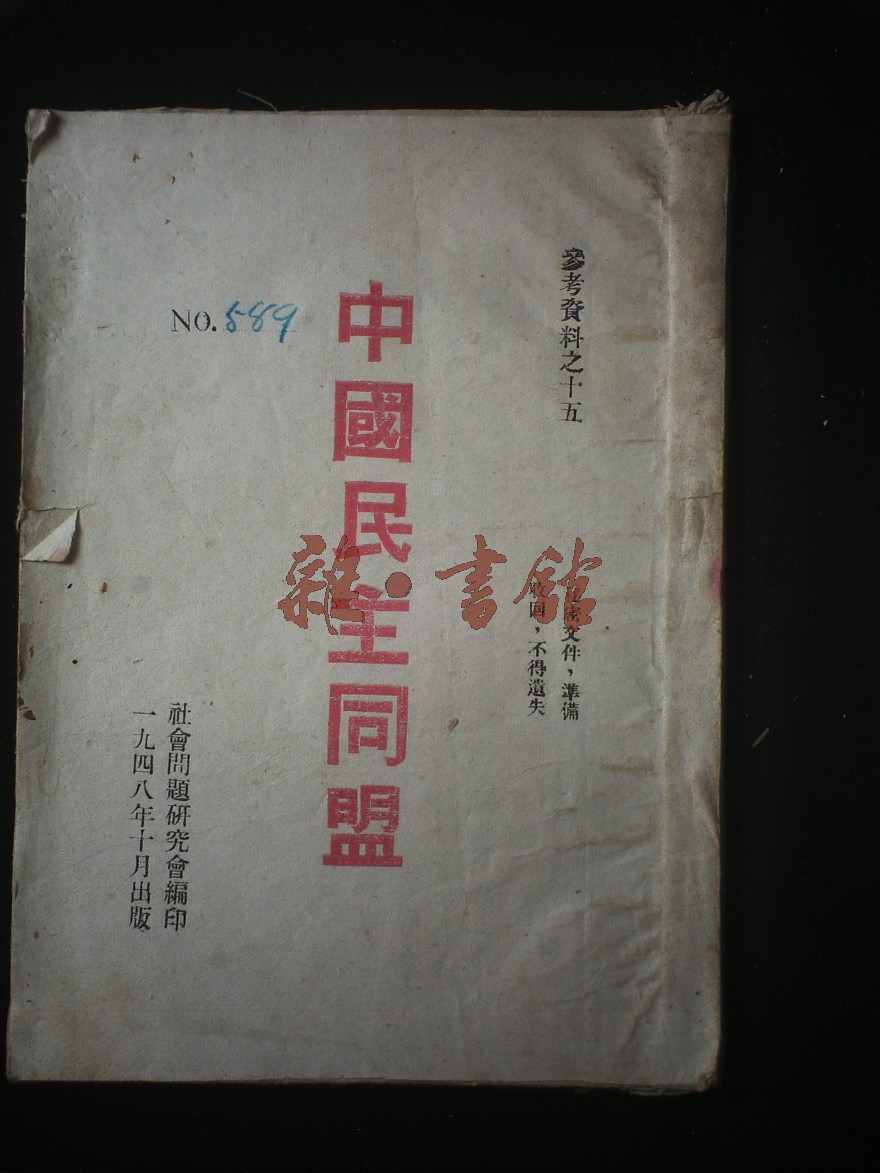 參考資料之十五
密文件，準備
收回，不得遺失
中國民主同盟
NO. 589
社會問題研究會編印
一九四八年十月出版
雜·書館